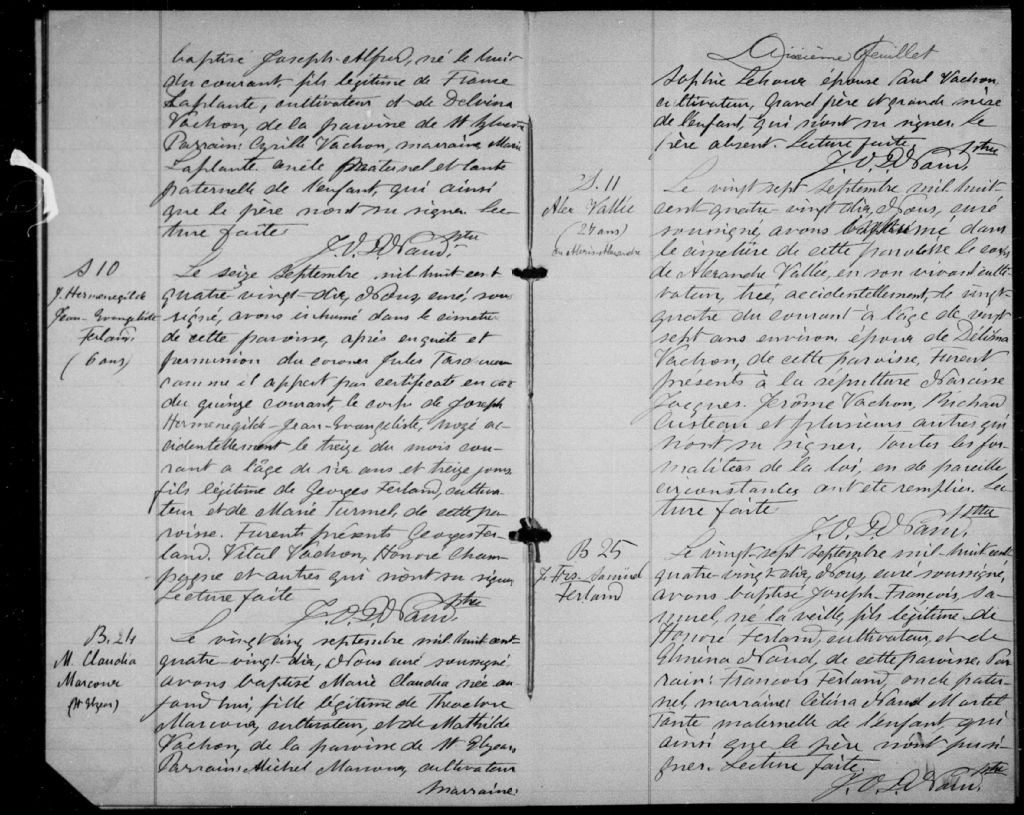 baptisé Joseph-Alfred, né le huit
du courant, fils légitime de
Laplante, cultivateur et de Delvina
Vachon, de la paroisse de St
Parrain: Cyrille Vachon, marraine Marie
Laplante oncle paternel et tante
paternelle de l'enfant, qui ainsi
que le père n'ont su signer. Lec-
ture faite.
ptre
S 10
J. Hermenegilde
Jean-Evangeliste
Ferland
(6 ans)
Le seize septembre mil huit cent
quatre-vingt-dix, Nous, curé, sous-
signé, avons inhumé dans le cimetière
de cette paroisse, après enquête et
permission du coroner Jules
comme il appert par certificat en
du quinze courant, le corps de Joseph
Hermenegilde-Jean-Evangeliste, noyé ac-
cidentellement le treize du mois cou-
rant a l'âge de six ans et treize jours
fils légitime de Georges Ferland, cultiva-
teur et de Marie Turmel, de cette pa-
roisse. Furent présents Georges Fer-
land. Vital Vachon, Honoré Cham-
pagne et autres qui n'ont su signer
Lecture faite
ptre
B. 24
M. Claudia
Marcoux
(St Elzéar)
Le vingt cinq septembre mil huit cent
quatre-vingt-dix, Nous curé soussigné
avons baptisé Marie Claudia née au-
jourd'hui, fille légitime de Theodore
Marcoux, cultivateur, et de Mathilde
Vachon, de la paroisse de St Elzear
Parrain: Michel Marcoux, cultivateur
marraine:
Dixième feuillet
Sophie Lehoux épouse Paul Vachon
cultivateur, Grand père et grande mère
de l'enfant, qui n'ont su signer. Le
père absent. Lecture faite.
ptre
S. 11
Alex Vallée
(27 ans)
Le vingt sept septembre mil huit-
cent quatre-vingt dix, Nous, curé
soussigné, avons inhumé dans
le cimetière de cette paroisse le corps
de Alexandre Vallée, en son vivant culti-
vateur, tué, accidentellement, le vingt-
quatre du courant à l'âge de vingt
sept ans environ, époux de Délima
Vachon, de cette paroisse, Furent
présents à la sepulture Narcisse
Jacques. Jérôme Vachon,
Custeau et plusieurs autres qui
n'ont su signer. Toutes les for-
malitées de la loi, en de pareille
circonstances ont été remplies. Lec-
ture faite
ptre
B 25
J. Frs-Samuel
Ferland
Le vingt sept septembre mil-huit cent
quatre-vingt-dix, Nous, curé soussigné,
avons baptisé Joseph-François, Sa-
muel, né la veille, fils légitime de
Honoré Ferland, cultivateur, et de
Nand, de cette paroisse. Par-
rain: François Ferland, oncle pater-
nel, marraine: Célina Nand Martel
tante maternelle de l'enfant qui
ainsi que le père n'ont pu si-
gner. Lecture faite.
ptre